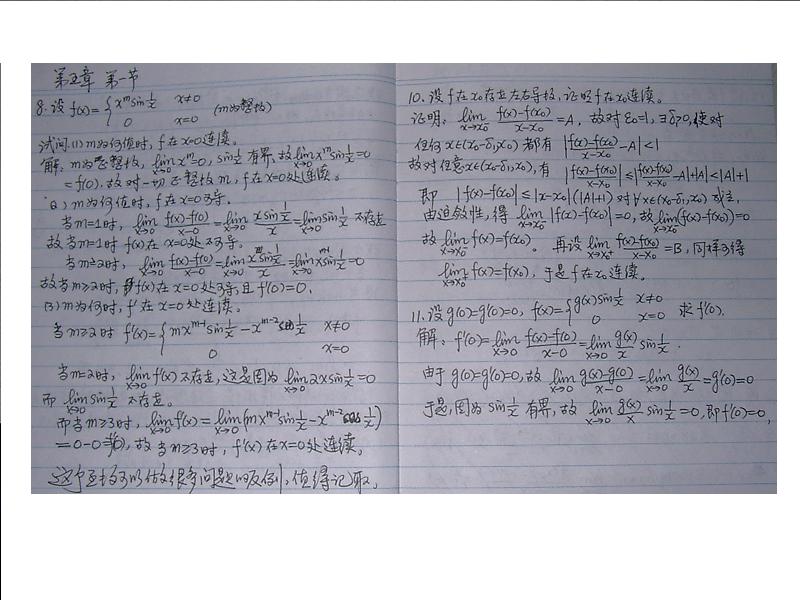 第五章 第一节
8.设 f(x)= { x^m sin 1/x x≠0
0 x=0 (m为整数)
试问:(1) m为何值时, f在x=0连续。
解: m为正整数, lim_{x→0} x^m=0, sin 1/x 有界, 故 lim_{x→0} x^m sin 1/x=0
=f(0), 故对一切正整数m, f在x=0处连续。
(2) m为何值时, f在x=0可导。
当m=1时, lim_{x→0} (f(x)-f(0))/(x-0) = lim_{x→0} (x sin 1/x)/x = lim_{x→0} sin 1/x 不存在
故当m=1时f(x)在x=0处不可导。
当m≥2时, lim_{x→0} (f(x)-f(0))/(x-0) = lim_{x→0} (x^m sin 1/x)/x = lim_{x→0} x^{m-1} sin 1/x=0
故当m≥2时, f(x)在x=0处可导, 且f'(0)=0.
(3) m为何时, f'在x=0处连续。
当m≥2时 f'(x)= { mx^{m-1} sin 1/x - x^{m-2} cos 1/x x≠0
0 x=0
当m=2时, lim_{x→0} f'(x)不存在, 这是因为 lim_{x→0} 2x sin 1/x=0
而 lim_{x→0} sin 1/x 不存在。
而当m≥3时, lim_{x→0} f'(x)= lim_{x→0} (mx^{m-1} sin 1/x - x^{m-2} cos 1/x)
=0-0=f'(0), 故当m≥3时, f'(x)在x=0处连续。
这个函数可以做很多问题的反例, 值得记取。
10.设f在x0存在左右导数, 证明f在x0连续。
证明: lim_{x→x0^-} (f(x)-f(x0))/(x-x0) =A, 故对ε0=1, ∃δ>0, 使对
任何x∈(x0-δ,x0)都有 |(f(x)-f(x0))/(x-x0) -A|<1
故对任意x∈(x0-δ,x0), 有 |(f(x)-f(x0))/(x-x0)| ≤ |(f(x)-f(x0))/(x-x0) -A|+|A|<|A|+1
即 |f(x)-f(x0)|≤|x-x0|(|A|+1) 对∀x∈(x0-δ,x0)成立,
由迫敛性, 得 lim_{x→x0^-} |f(x)-f(x0)|=0, 故 lim_{x→x0^-} (f(x)-f(x0))=0
故 lim_{x→x0^-} f(x)=f(x0)。 再设 lim_{x→x0^+} (f(x)-f(x0))/(x-x0) =B, 同样可得
lim_{x→x0^+} f(x)=f(x0), 于是f在x0连续。
11.设g(0)=g'(0)=0, f(x)= { g(x) sin 1/x x≠0
0 x=0 求f'(0).
解: f'(0)= lim_{x→0} (f(x)-f(0))/(x-0) = lim_{x→0} g(x)/x sin 1/x .
由于g(0)=g'(0)=0, 故 lim_{x→0} (g(x)-g(0))/(x-0) = lim_{x→0} g(x)/x = g'(0)=0
于是, 因为 sin 1/x 有界, 故 lim_{x→0} g(x)/x sin 1/x=0, 即f'(0)=0,